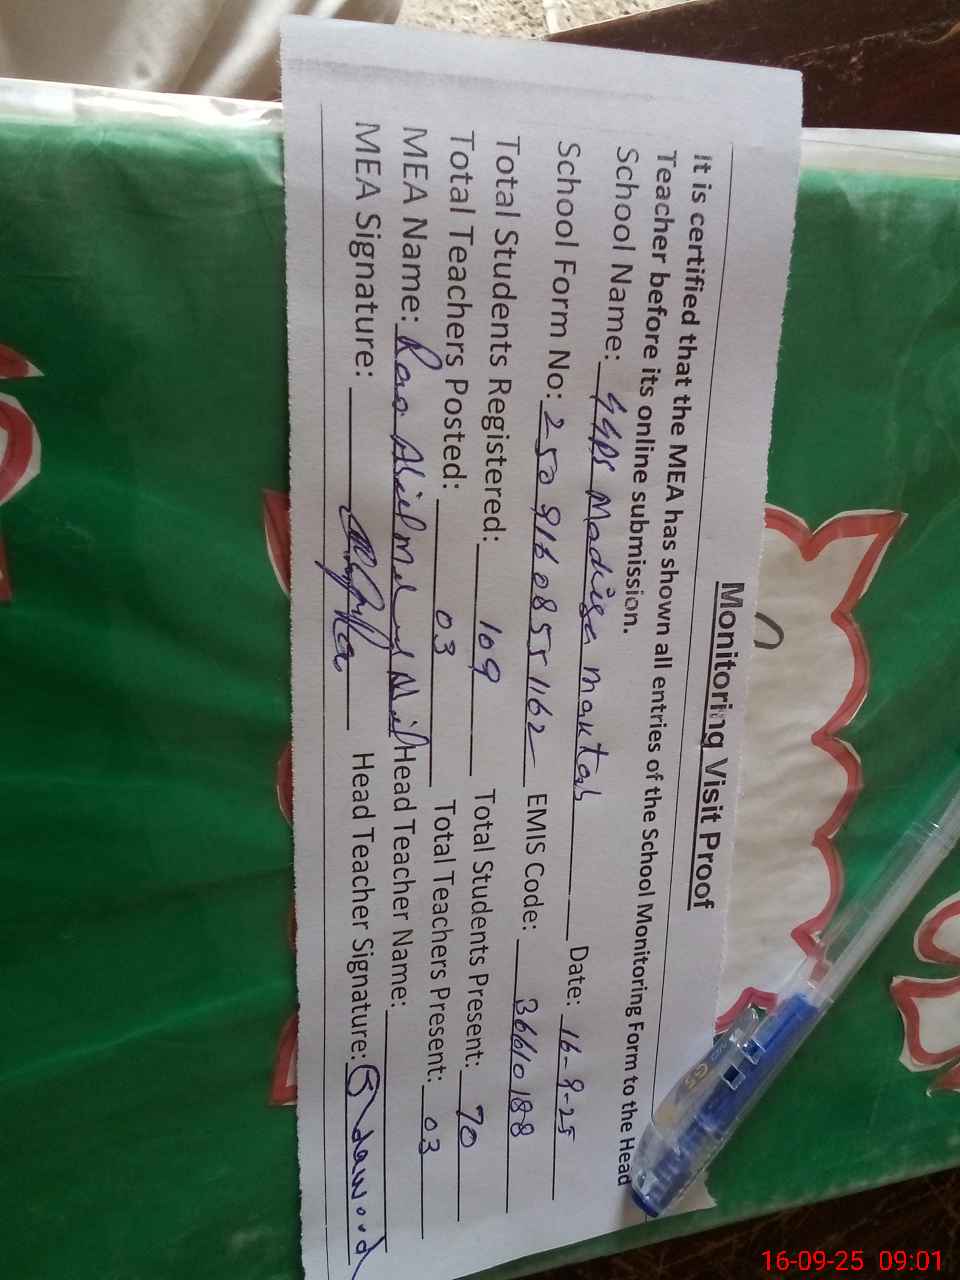 Monitoring Visit Proof
It is certified that the MEA has shown all entries of the School Monitoring Form to the Head
Teacher before its online submission.
School Name: GGPS Madisa mantab Date: 16-9-25
School Form No: 25091608551162 EMIS Code: 36610188
Total Students Registered: 109 Total Students Present: 70
Total Teachers Posted: 03 Total Teachers Present: 03
MEA Name: Rao Head Teacher Name:
MEA Signature: Head Teacher Signature: dawood
16-09-25 09:01